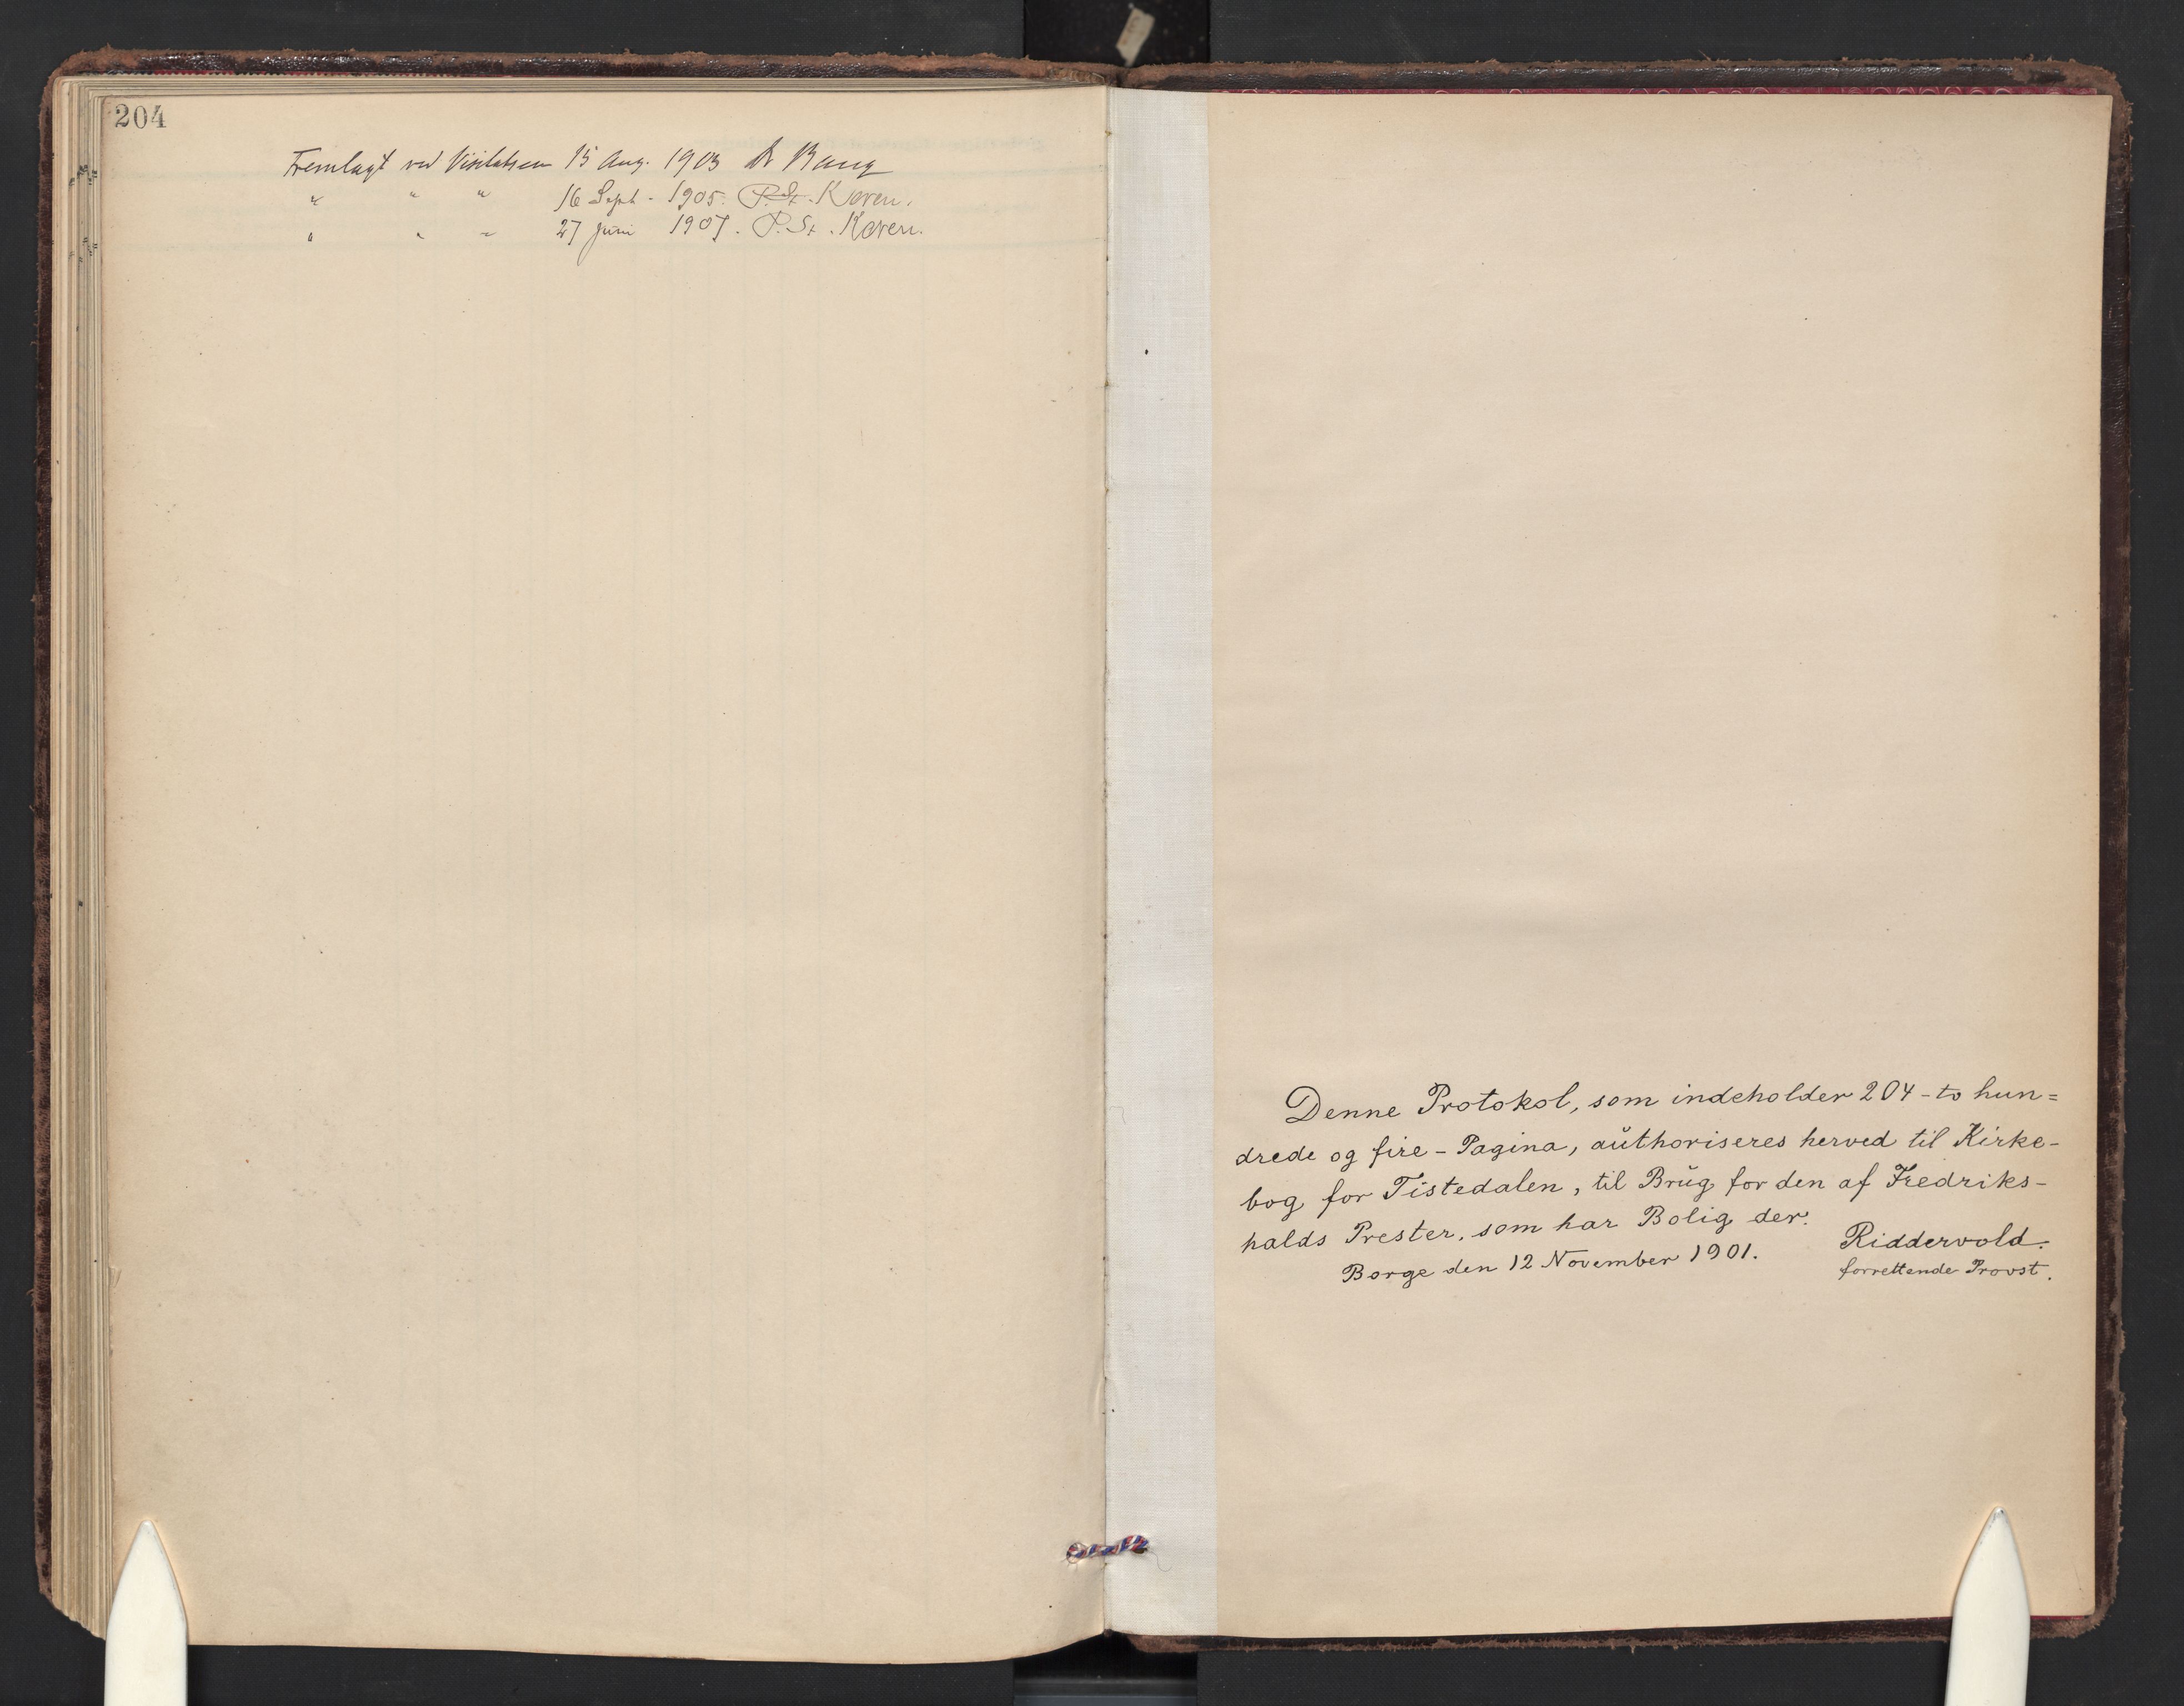 204
Fremlagt ved Visitatsen 15 Aug. 1903 Dr Bang
" " " 16 Sept. 1905. P. St. Kæren.
" " " 27 Juni 1907. P. St. Kæren.
Denne Protokol, som indeholder 204 - to hun=
drede og fire - Pagina, aŭthoriseres herved til Kirke-
bog for Tistedalen, til Brŭg for den af Fredriks-
halds Prester, som har Bolig der.
Borge den 12 November 1901. Riddervold.
forrettende Provst.